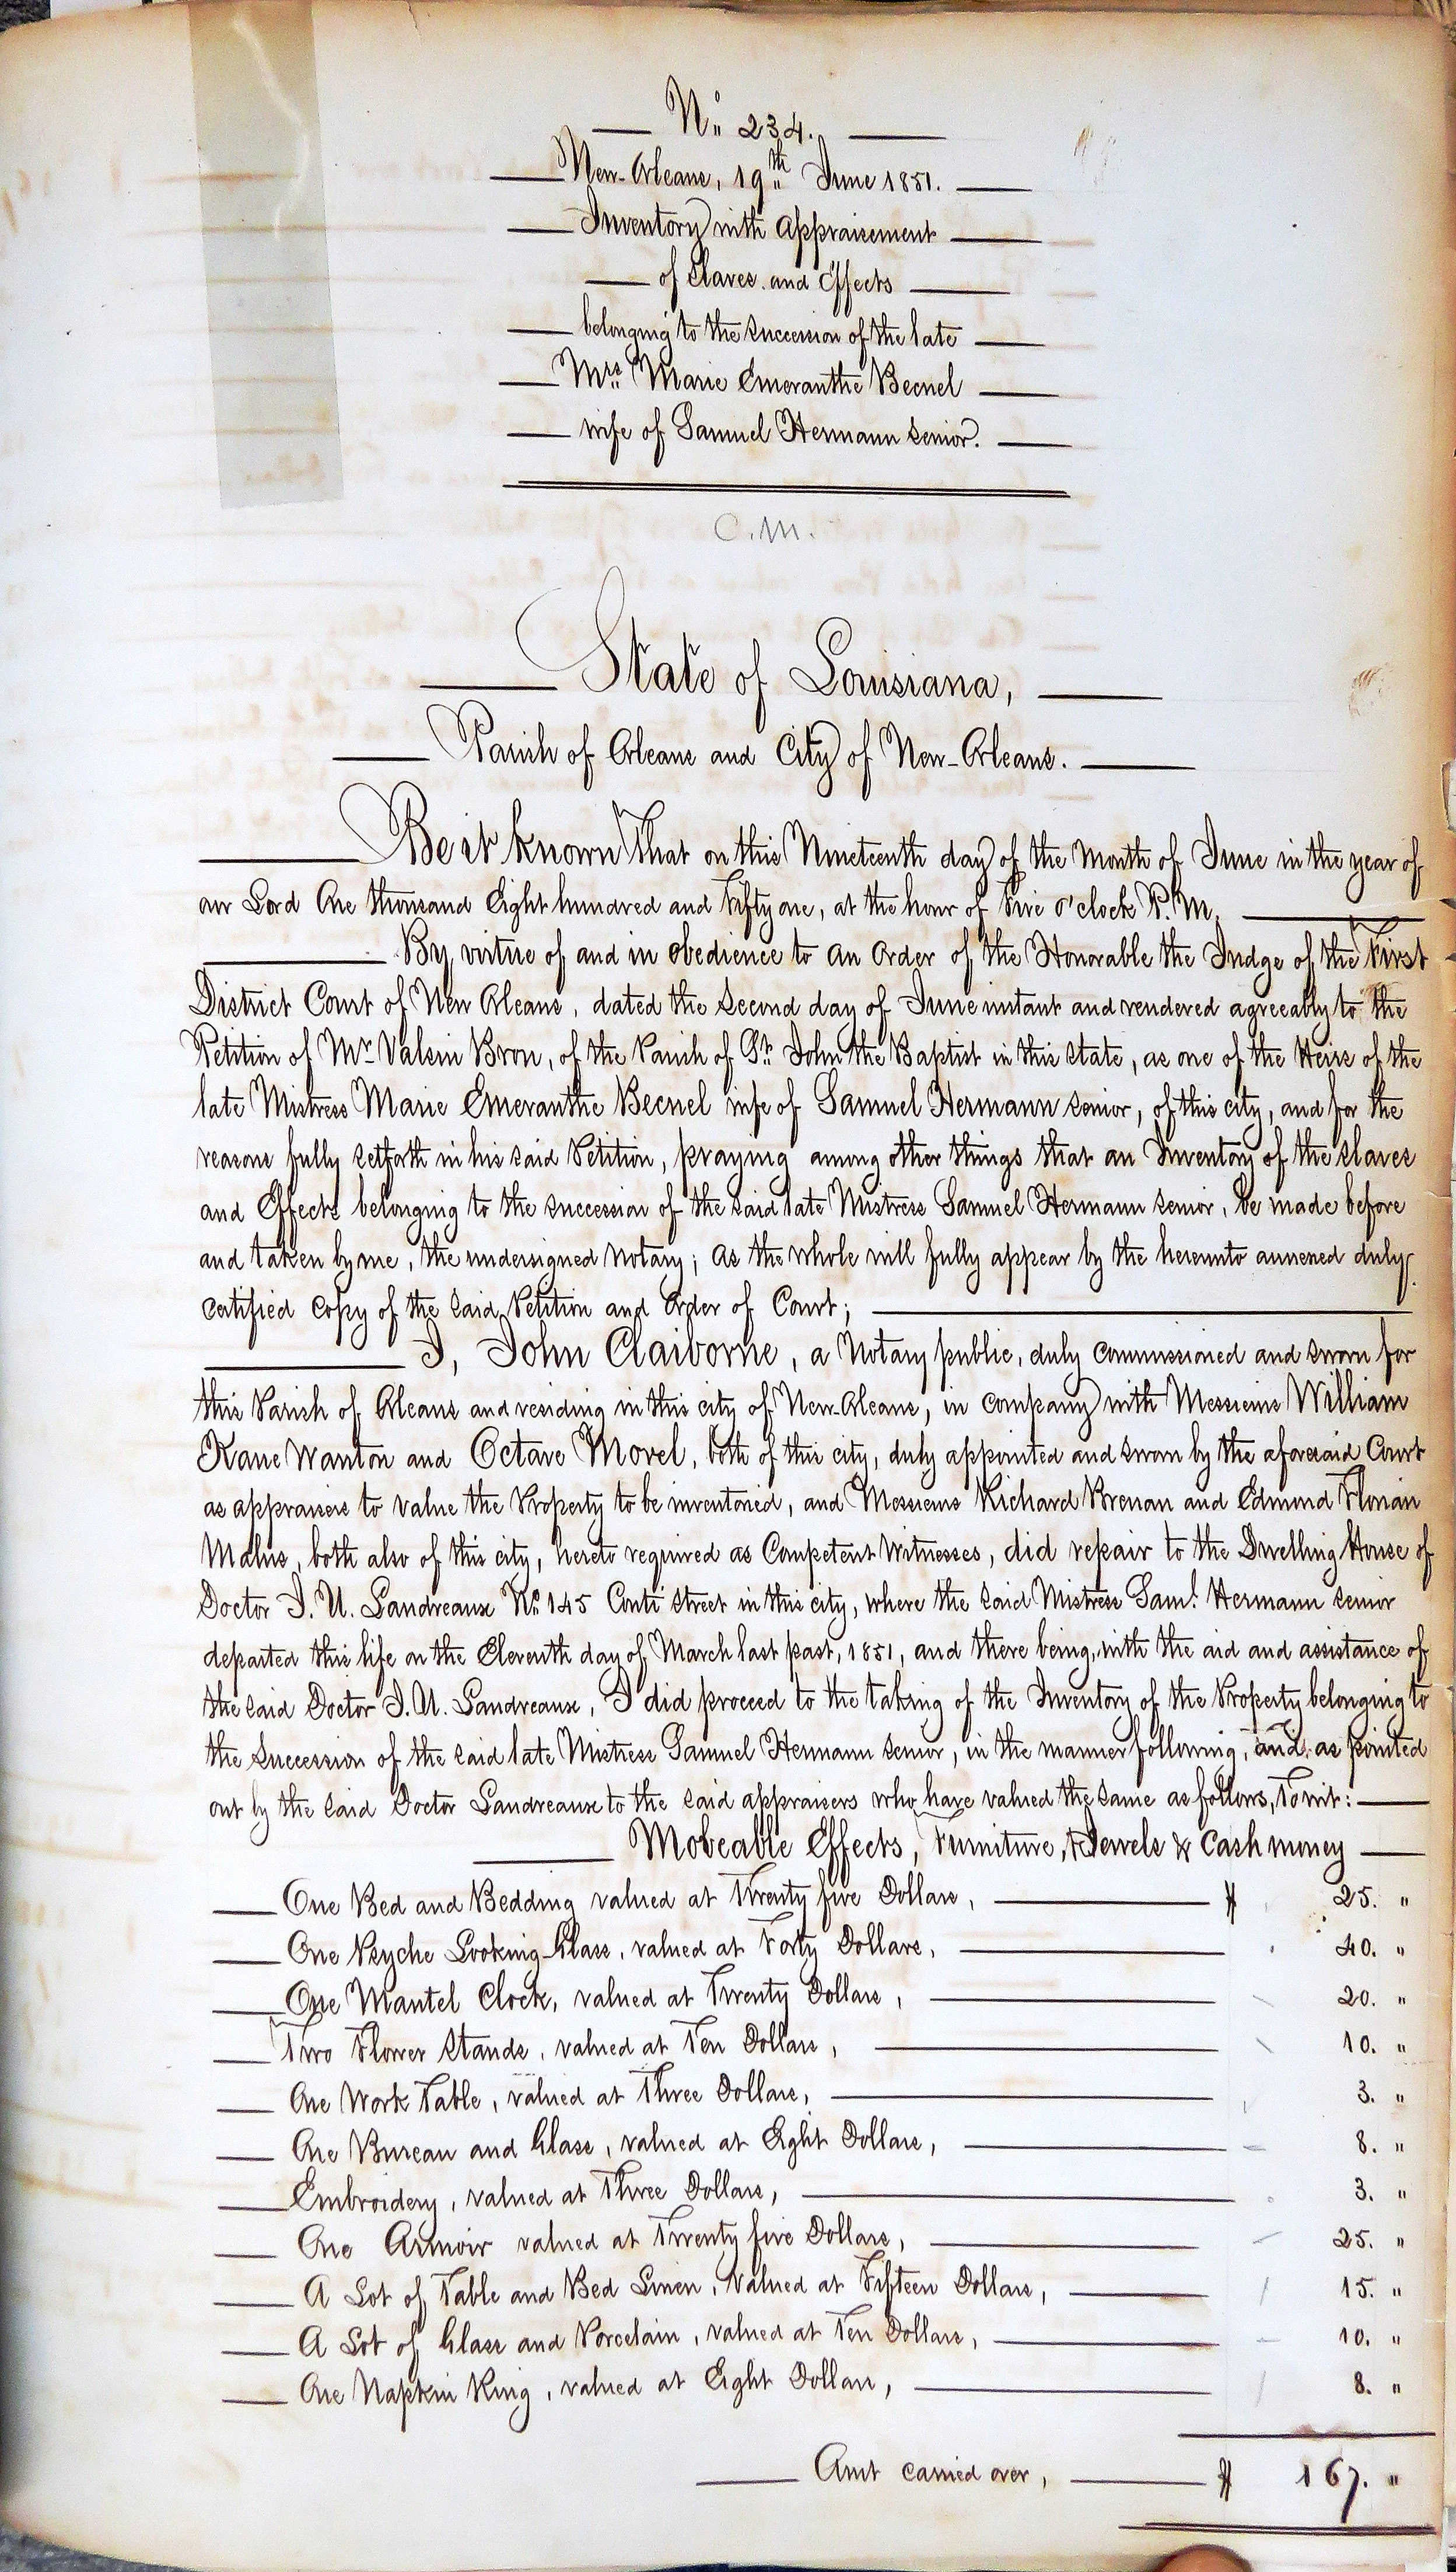 No. 234.
New-Orleans, 19th June 1851.
Inventory with appraisement
of Slaves. and Effects
belonging to the succession of the late
Mrs. Marie Emeranthe Becnel
wife of Samuel Hermann senior.
C.M.
State of Louisiana,
Parish of Orleans and City of New-Orleans.
Be it known That on this Nineteenth day of the Month of June in the year of
our Lord One thousand Eight hundred and Fifty one, at the hour of Five o'clock P.M.
By virtue of and in obedience to an Order of the Honorable the Judge of the First
District Court of New Orleans, dated the Second day of June instant and rendered agreeably to the
Petition of Mr. Valsin Bron, of the Parish of St. John the Baptist in this State, as one of the Heirs of the
late Mistress Marie Emeranthe Becnel wife of Samuel Hermann senior, of this city, and for the
reasons fully setforth in his said Petition, praying among other things that an Inventory of the slaves
and Effects belonging to the succession of the said late Mistress Samuel Hermann senior, be made before
and taken by me, the undersigned Notary; as the whole will fully appear by the hereunto annexed duly
certified copy of the said Petition and Order of Court;
I, John Claiborne, a Notary public, duly commissioned and sworn for
this Parish of Orleans and residing in this city of New-Orleans, in company with Messieurs William
Kane Wanton and Octave Morel, both of this city, duly appointed and sworn by the aforesaid Court
as appraisers to value the Property to be inventoried, and Messieurs Richard Brenan and Edmond Florian
Malus, both also of this city, hereto required as Competent Witnesses, did repair to the Dwelling House of
Doctor J. U. Landreaux No. 145 Conti Street in this city, where the said Mistress Saml. Hermann senior
departed this life on the Eleventh day of March last past, 1851, and there being, with the aid and assistance of
the said Doctor J. U. Landreaux, I did proceed to the taking of the Inventory of the Property belonging to
the Succession of the said late Mistress Samuel Hermann senior, in the manner following, and as pointed
out by the said Doctor Landreaux to the said appraisers who have valued the same as follows, Towit:
Moveable Effects, Furniture, Jewels & Cash money
One Bed and Bedding valued at Twenty five Dollars, $ 25. "
One Psyche Looking-Glass, valued at Forty Dollars, 40. "
One Mantel Clock, valued at Twenty Dollars, 20. "
Two Flower Stands, valued at Ten Dollars, 10. "
One Work Table, valued at Three Dollars, 3. "
One Bureau and Glass, valued at Eight Dollars, 8. "
Embroidery, valued at Three Dollars, 3. "
One Armoir valued at Twenty five Dollars, 25. "
A Lot of Table and Bed Linen, valued at Fifteen Dollars, 15. "
A Lot of Glass and Porcelain, valued at Ten Dollars, 10. "
One Napkin Ring, valued at Eight Dollars, 8. "
Amt carried over, $ 167. "